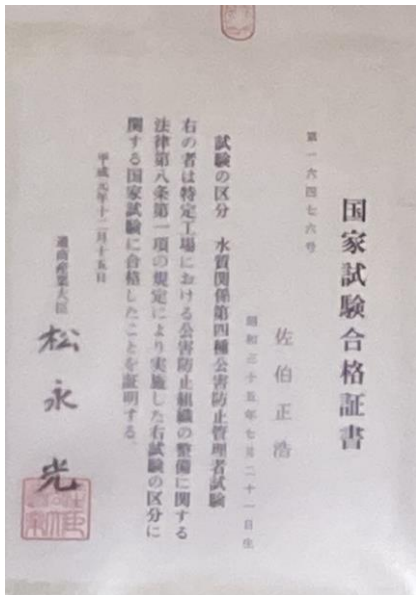 国家試験合格証書
第一六四七六号
佐伯正浩
昭和三十五年七月二十一日生
試験の区分　水質関係第四種公害防止管理者試験
右の者は特定工場における公害防止組織の整備に関する
法律第八条第一項の規定により実施した右試験の区分に
関する国家試験に合格したことを証明する
平成元年十二月十五日
通商産業大臣
松永光